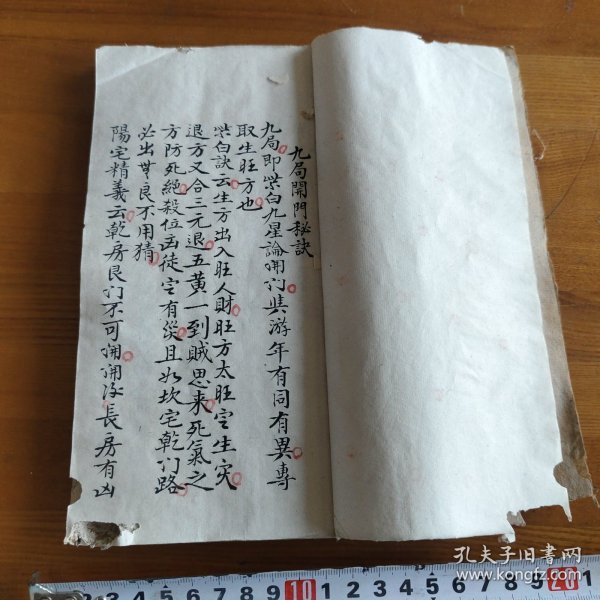 九局開門秘訣
九局即紫白九星論開门與游年有同有異專
取生旺方也
紫白訣云生方出入旺人財旺方太旺定生灾
退方又合三元退五黃一到賊思来死氣之
方防死絕殺位凶徒定有災且如坎宅乾门路
必出無良不用猜
陽宅精義云乾房艮门不可開開後長房有凶
孔夫子旧書网
www.kongfz.com
10
20
1
2
3
4
5
6
7
8
9